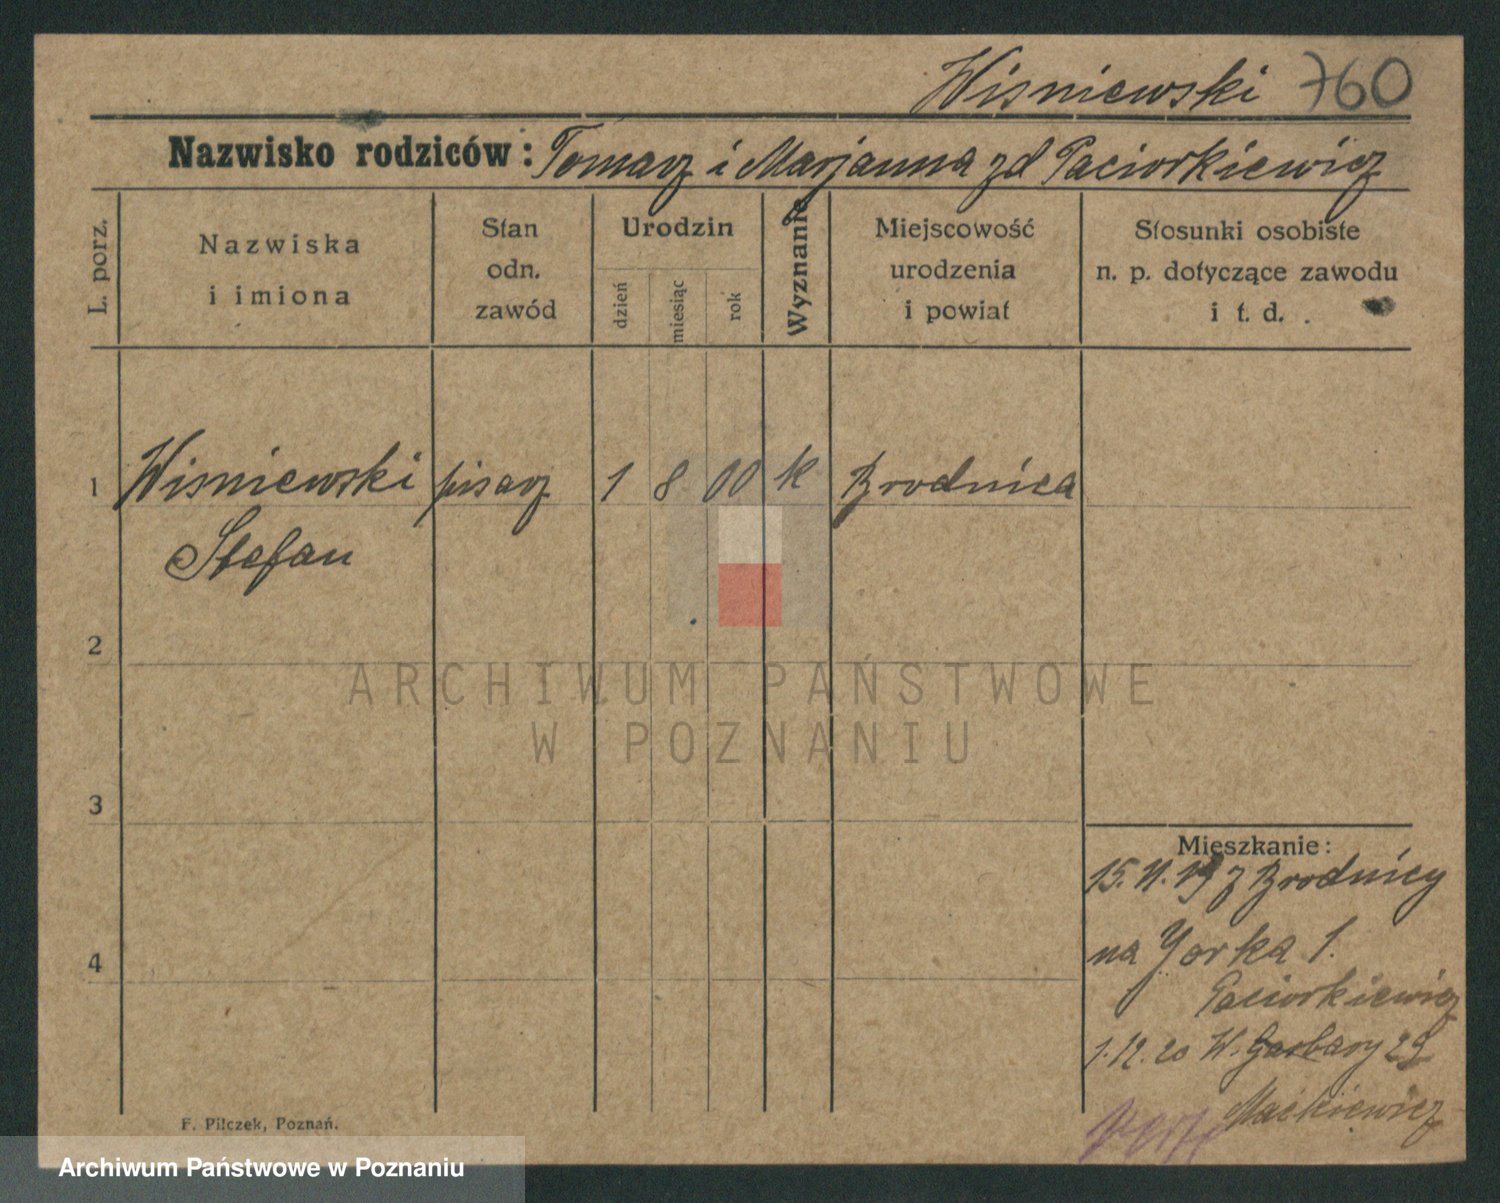 Wisniewski 760
Nazwisko rodziców: Tomasz i Marjanna zd Paciorkiewicz
L. porz.
Nazwiska
i imiona
Stan
odn.
zawód
Urodzin
dzień
miesiąc
rok
Wyznanie
Miejscowość
urodzenia
i powiat
Stosunki osobiste
n. p. dotyczące zawodu
i t. d.
1 Wisniewski pisarz 1 8 00 k Brodnica
Stefan
2
3
4
ARCHIWUM PAŃSTWOWE
W POZNANIU
Mieszkanie:
15.11.19 z Brodnicy
na Yorka 1.
Paciorkiewicz
1.12.20 W. Garbary 29
Maćkiewicz
F. Pilczek, Poznań.
Archiwum Państwowe w Poznaniu